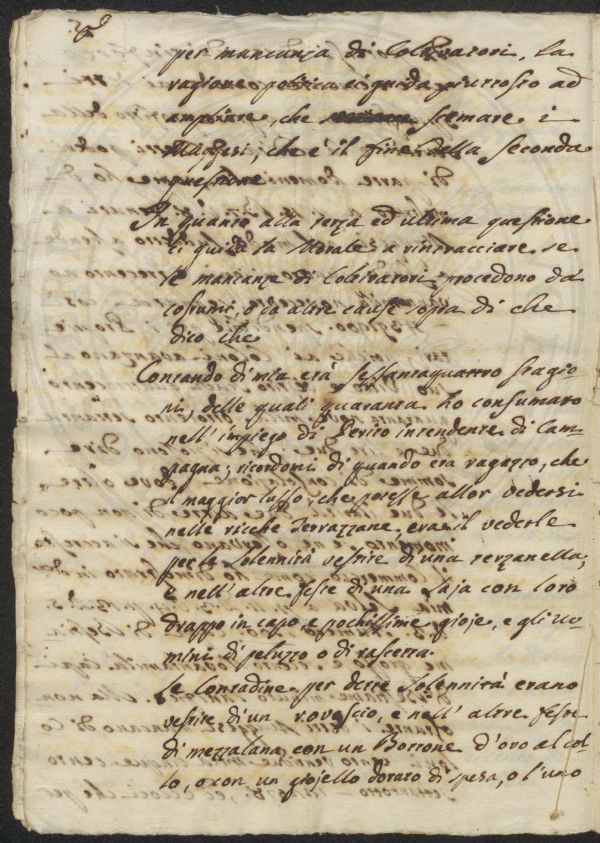 per mancanza di Coltivatori, la
ragione politica ci guida piuttosto ad
ampliare, che scemare i
Maggesi, che è il fine della seconda
questione
In quanto alla terza ed ultima questione
ci guida la Morale a rintracciare se
le mancanze di Coltivatori procedono da
costumi, o da altre cause sopra di che
dico che
Contando di mia età sessantaquattro stagio-
ni, delle quali quaranta ho consumato
nell'impiego di Perito intendente di Cam-
pagna; ricordomi di quando era ragazzo, che
il maggior lusso, che potesse allor vedersi
nelle ricche Terrazzane, era il vederle
per le Solennità vestite di una terzanella,
e nell'altre feste di una Saja con loro
drappo in capo, e pochissime gioje, e gli uo-
mini di peluzzo o di rascetta.
Le Contadine per dette Solennità erano
vestite di un rovescio, e nell'altre feste
di mezzalana con un Bottone d'oro al col-
lo, o con un giojello dorato di spesa, o l'uno